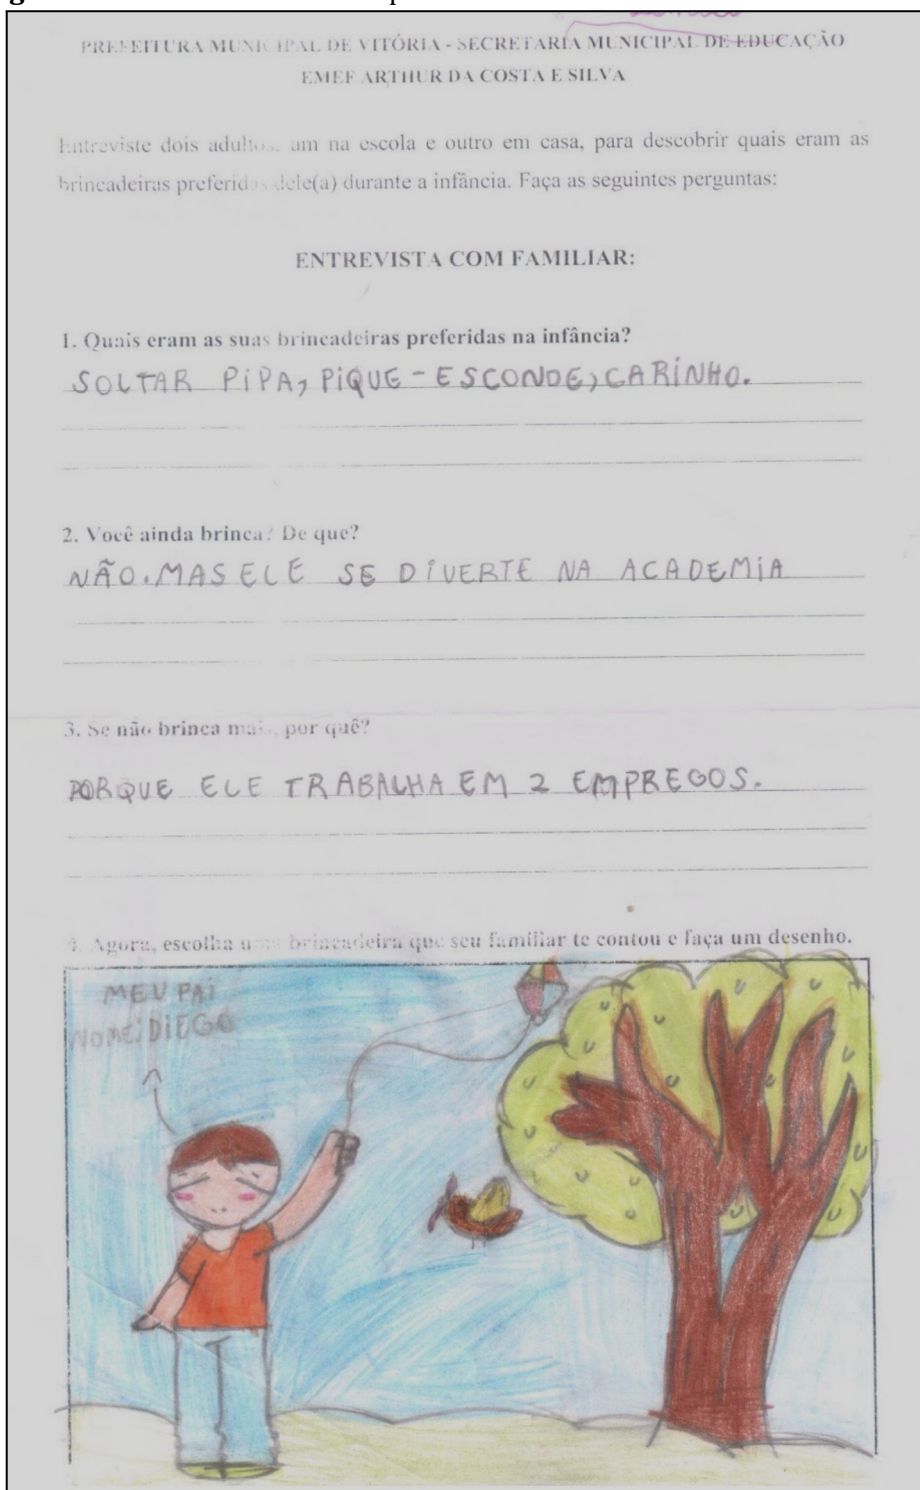 PREFEITURA MUNICIPAL DE VITÓRIA - SECRETARIA MUNICIPAL DE EDUCAÇÃO
EMEF ARTHUR DA COSTA E SILVA
Entreviste dois adultos, um na escola e outro em casa, para descobrir quais eram as
brincadeiras preferidas dele(a) durante a infância. Faça as seguintes perguntas:
ENTREVISTA COM FAMILIAR:
1. Quais eram as suas brincadeiras preferidas na infância?
SOLTAR PIPA, PIQUE-ESCONDE, CARINHO.
2. Você ainda brinca? De que?
NÃO. MAS ELE SE DIVERTE NA ACADEMIA
3. Se não brinca mais, por quê?
PORQUE ELE TRABALHA EM 2 EMPREGOS.
4. Agora, escolha uma brincadeira que seu familiar te contou e faça um desenho.
MEU PAI
NOME: DIEGO